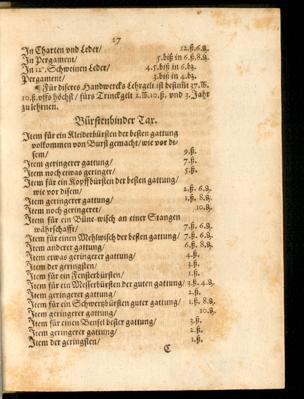 27
In Charten vnd Leder/ 12.ß.6.₰.
In Pergament/ 5.biß in 6.ß.8.₰.
In 12°. Schweinen Leder/ 4.5.biß in 6.ß.
Pergament/ 3.biß in 4.ß.
¶ Für dises Handwercks Lehrgelt ist bestimt 37.W.
10.ß.vffs höchst/ fürs Trinckgelt 2.W.10.ß. vnd 3. Jahr
zu lehrnen.
Bürstenbinder Tax.
Item für ein Kleiderbürsten der besten gattung
vollkommen von Burst gemacht/ wie vor di-
sem/ 9.ß.
Item geringerer gattung/ 7.ß.
Item noch etwas geringer/ 5.ß.
Item für ein Kopffbürsten der besten gattung/
wie vor disem/ 2.ß.
Item geringerer gattung/ 1.ß. 8.₰.
Item noch geringerer/ 10.₰.
Item für ein Büne-wisch an einer Stangen
währschafft/ 7.ß. 6.₰.
Item für einen Mehlwisch der besten gattung/ 7.ß. 6.₰.
Item anderer gattung/ 6.ß. 8.₰.
Item etwas geringerer gattung/ 4.ß.
Item der geringsten/ 3.ß.
Item für ein Fensterbürsten/ 1.ß.
Item für ein Messerbürsten der guten gattung/ 3.ß.4.₰.
Item geringerer gattung/ 2.ß.
Item für ein Schwertzbürsten guter gattung/ 1.ß. 8.₰.
Item geringerer gattung/ 10.₰.
Item für einen Bensel bester gattung/ 3.ß.
Item geringerer gattung/ 2.ß.
Item der geringsten/ 1.ß.
C